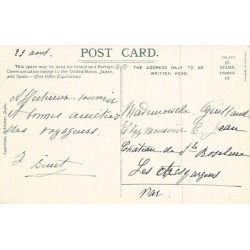 23 août.
POST CARD.
This space may be used for Inland and Foreign
Communication except to the United States, Japan,
and Spain.—(Post Office Regulation.)
THE ADDRESS ONLY TO BE
WRITTEN HERE.
STAMP
Affectueux souvenir
et bonnes amitiés
des voyageurs.
Mademoiselle
Chez monsieur E. Jean
Château de Ste Roseline
Les Arcs
Var